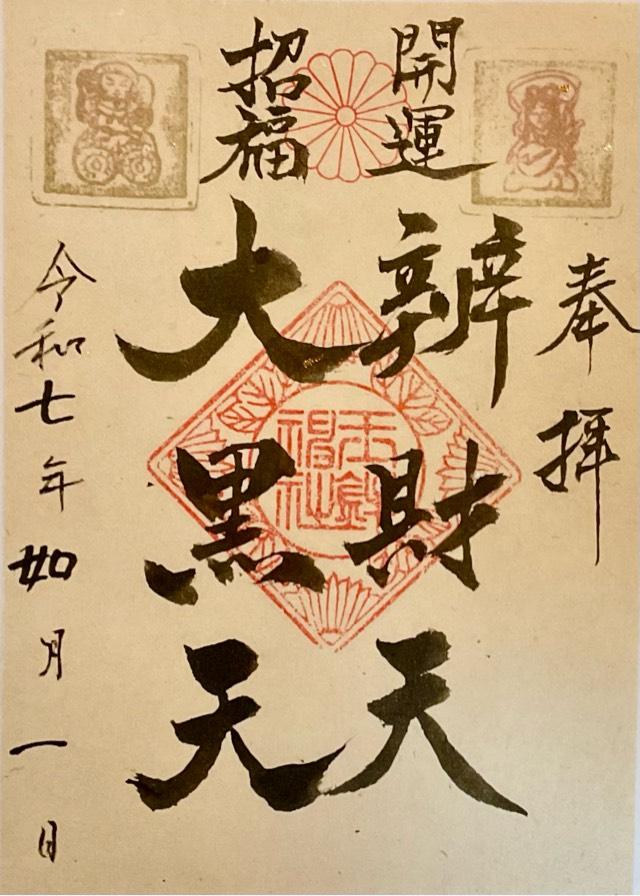 奉拝
開運
辨財天
招福
大黒天
令和七年如月一日